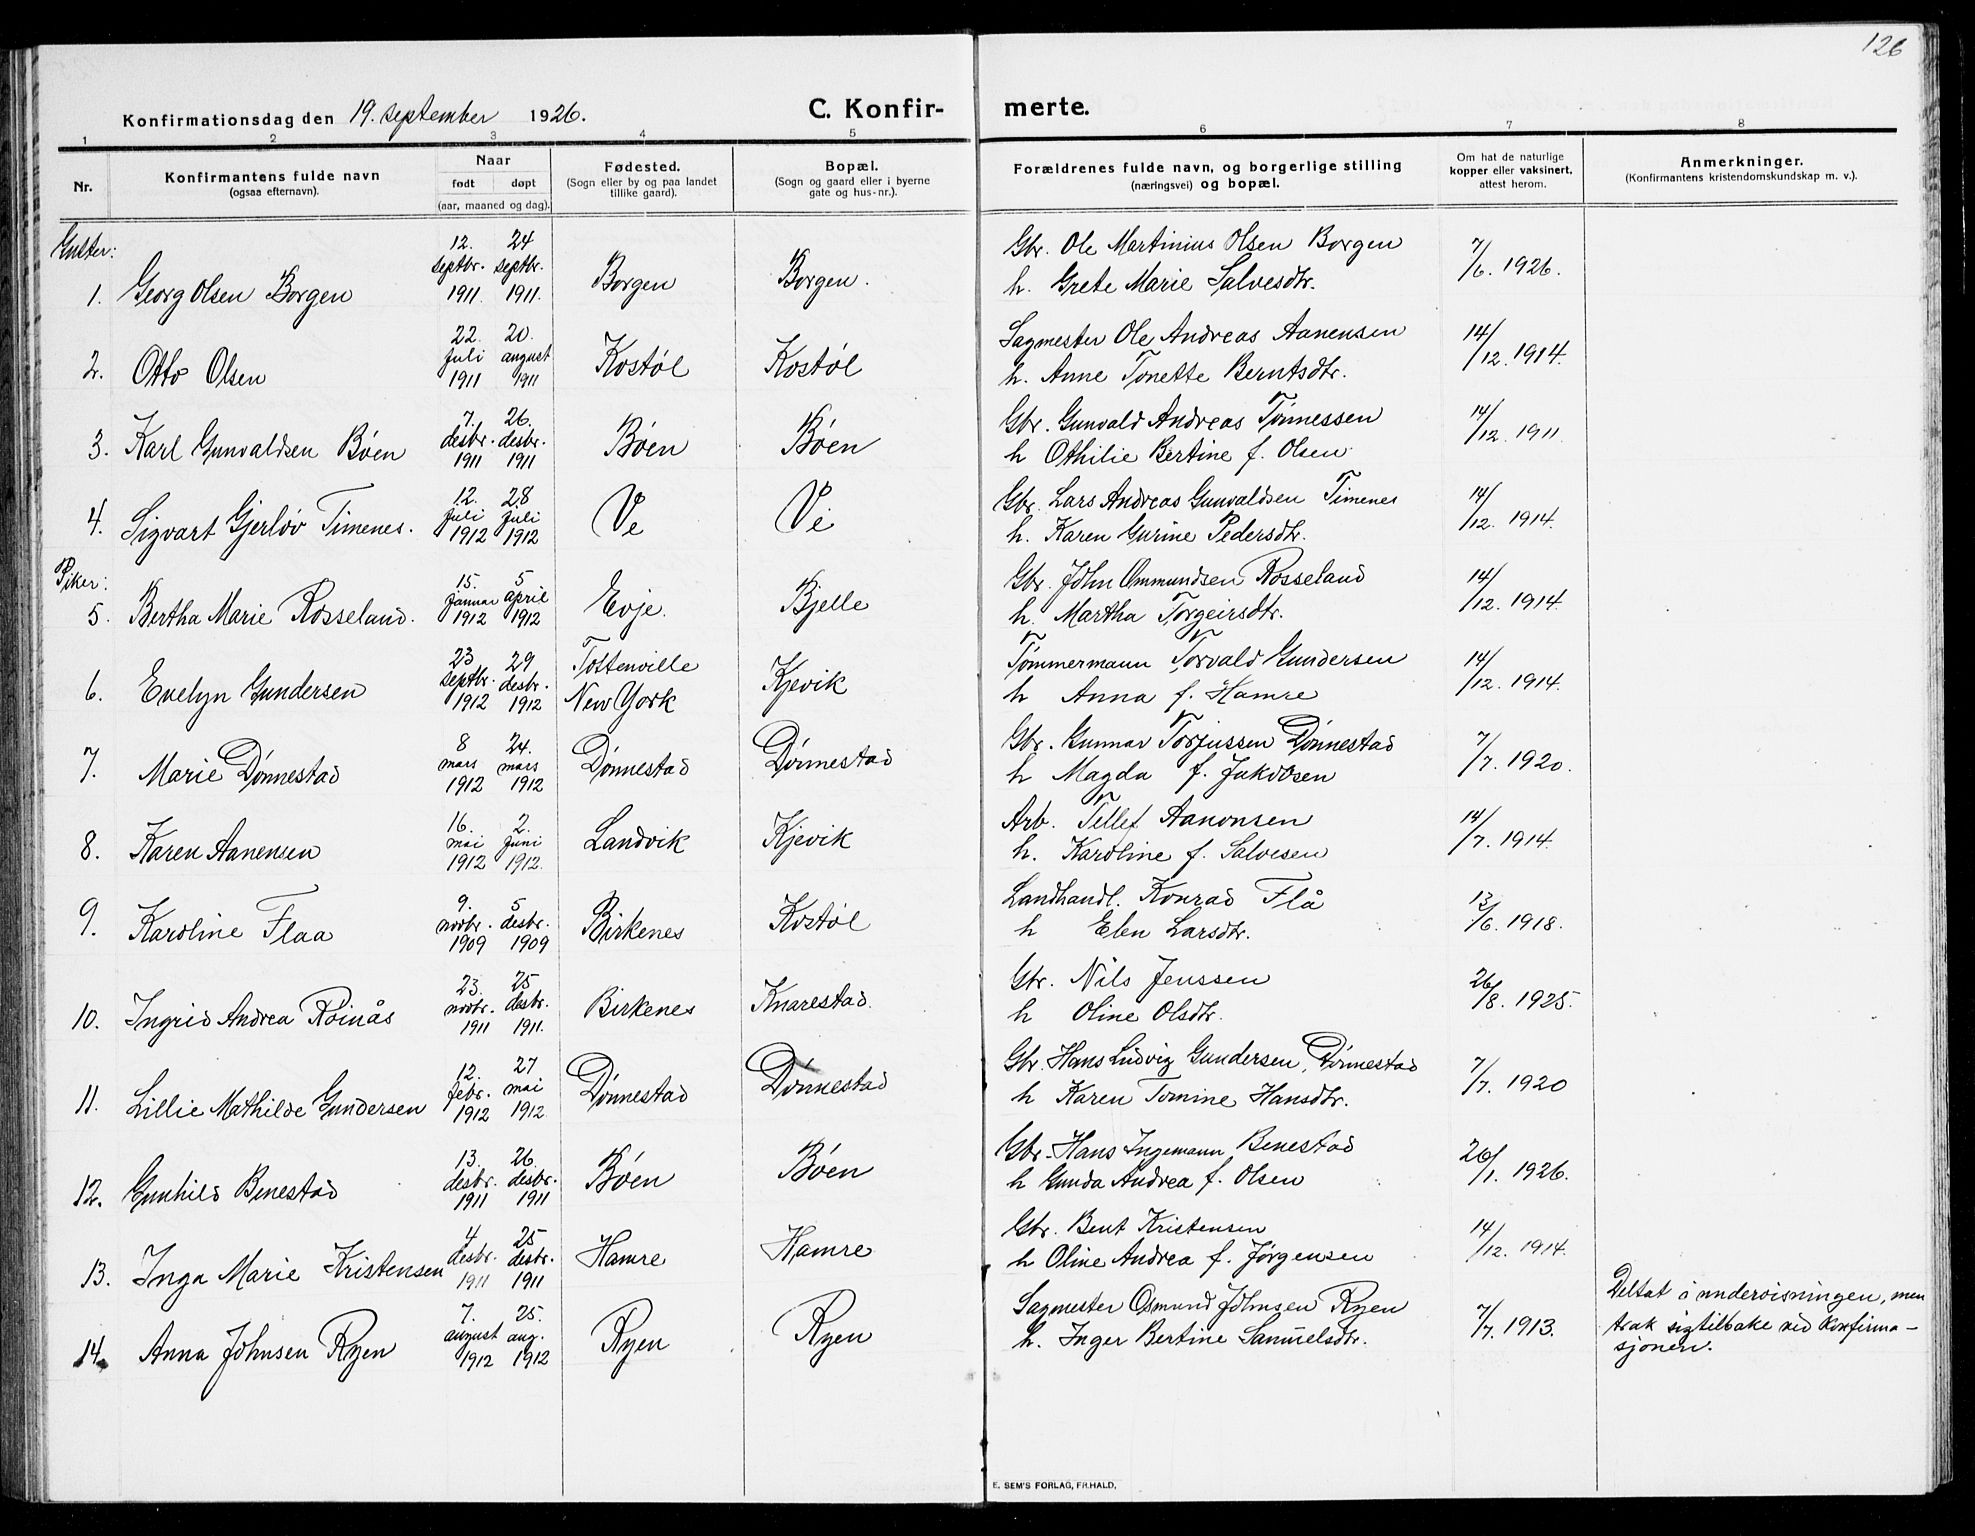 126
Konfirmationsdag den 19. september 1926. C. Konfir- merte.
1 2 3 4 5 6 7 8
Nr. Konfirmantens fulde navn (ogsaa efternavn). Naar født døpt (aar, maaned og dag). Fødested. (Sogn eller by og paa landet tillike gaard). Bopæl. (Sogn og gaard eller i byerne gate og hus-nr.). Forældrenes fulde navn, og borgerlige stilling (næringsvei) og bopæl. Om hat de naturlige kopper eller vaksinert, attest herom. Anmerkninger. (Konfirmantens kristendomskundskap m. v.).
Gutter:
1. Georg Olsen Borgen 12. septbr. 1911. 24 septbr. 1911. Borgen Borgen. Gbr. Ole Martinius Olsen Borgen 7/6. 1926.
h. Grete Marie Salvesdtr.
2. Otto Olsen 22. juli 1911 20. august 1911 Kostøl Kostøl Sagmester Ole Andreas Aanensen 14/12. 1914.
h. Anne Tonette Berntsdtr.
3. Karl Gunvaldsen Bøen 7. desbr. 1911 26. desbr. 1911 Bøen Bøen Gbr. Gunvald Andreas Tønnessen 14/12. 1911.
h Othilie Bertine f. Olsen
4. Sigvart Gjerløv Timenes. 12. juli 1912 28. juli 1912 Ve Ve Gbr. Lars Andreas Gunvaldsen Timenes 14/12. 1914.
h. Karen Gurine Pedersdtr.
Piker:
5. Bertha Marie Rosseland. 15. januar 1912 5 april 1912 Evje. Bjelle Gbr. John Ommundsen Rosseland 14/12. 1914.
h. Martha Torgeirsdtr.
6. Evelyn Gundersen 23 septbr. 1912 29 desbr. 1912 Tottenville New York Kjevik Tømmermann Torvald Gundersen 14/12. 1914.
h Anna f. Hamre
7. Marie Dønnestad 8 mars 1912 24. mars 1912 Dønnestad Dønnestad Gbr. Gunnar Torjussen Dønnestad 7/7. 1920.
h Magda f. Jakobsen
8. Karen Aanensen 16. mai 1912 2. juni 1912. Landvik Kjevik Arb. Tellef Aanonsen 14/7. 1914.
h. Karoline f. Salvesen
9. Karoline Flaa 9. novbr. 1909 5 desbr. 1909 Birkenes Kostøl Landhandl. Konrad Flå 13/6. 1918.
h Elen Larsdtr.
10. Ingrid Andrea Roinås 23. novbr. 1911 25 desbr. 1911. Birkenes Knarestad. Gbr. Nils Jenssen 26/8. 1925.
h Oline Olsdtr.
11. Lillie Mathilde Gundersen 12. febr. 1912 27 mai 1912. Dønnestad Dønnestad Gbr. Hans Ludvig Gundersen, Dønnestad 7/7. 1920
h Karen Tomine Hansdtr.
12. Gunhild Benestad 13. desbr. 1911 26 desbr. 1911 Bøen Bøen Gbr. Hans Ingemann Benestad 26/1. 1926.
h Gunda Andrea f. Olsen
13. Inga Marie Kristensen 4 desbr. 1911 25 desbr. 1911 Hamre Hamre Gbr. Bent Kristensen 14/12. 1914.
h Oline Andrea f. Jørgensen
14. Anna Johnsen Ryen 7. august 1912 25. aug. 1912 Ryen Ryen Sagmester Osmund Johnsen Ryen 7/7. 1913.
h. Inger Bertine Samuelsdtr.
Deltat i undervisningen, men
trak sig tilbake ved konfirma-
sjonen.
E. SEM'S FORLAG, FR.HALD.